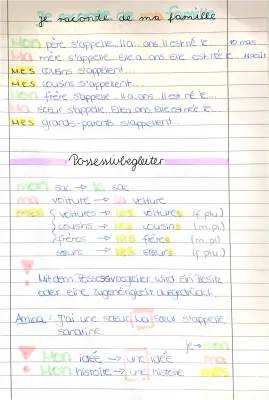 je raconte de ma famille
Mon père s'appelle... Il a... ans. Il est né le... 10 mars
Ma mère s'appelle... Elle a... ans. Elle est née le...
Mes cousins s'appellent...
Mes cousines s'appellent...
Mon frère s'appelle... Il a... ans. Il est né le...
Ma sœur s'appelle... Elle a... ans. Elle est née le...
Mes grands-parents s'appellent...
Possessivbegleiter
mon sac → le sac
ma voiture → la voiture
mes voitures → les voitures (f.plu.)
cousins → les cousins (m.pl.)
frères → les frères (m.pl.)
sœurs → les sœurs (f.pl.)
! Mit dem Possessivbegleiter wird ein Besitz
oder eine Zugehörigkeit ausgedrückt.
Amina: J'ai une sœur. Ma sœur s'appelle
je → mon
! Mon idée → une idée ma
! Mon histoire → une histoire mes